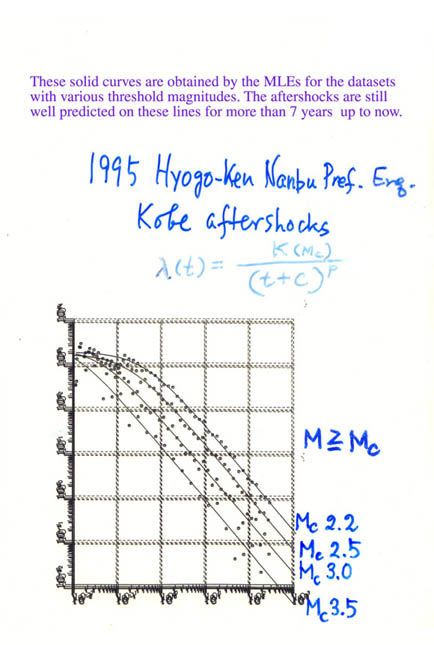 These solid curves are obtained by the MLEs for the datasets
with various threshold magnitudes. The aftershocks are still
well predicted on these lines for more than 7 years up to now.
1995 Hyogo-Ken Nanbu Pref. Erq.
Kobe aftershocks
λ(t) = K(Mc) / (t+c)^p
M ≧ Mc
Mc 2.2
Mc 2.5
Mc 3.0
Mc 3.5